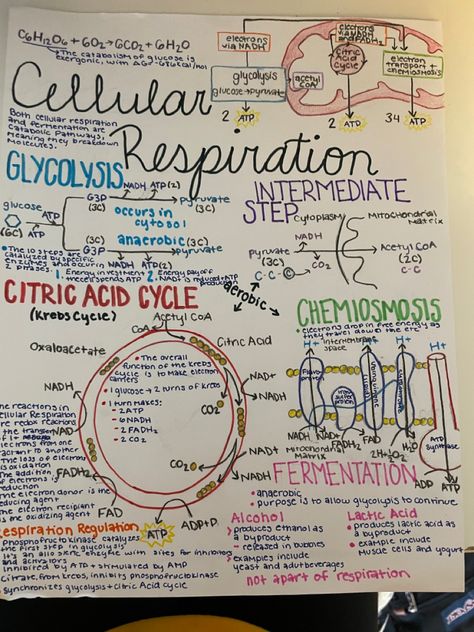 C6H12O6 + 6O2 → 6CO2 + 6H2O
The catabolism of glucose is
exergonic, with ΔG of -686 kcal/mol
electrons
via NADH
electrons
via NADH
and FADH2
glycolysis
glucose → pyruvate
acetyl
CoA
Citric
Acid
Cycle
electron
transport
+
chemiosmosis
2 ATP
2 ATP
34 ATP
Cellular
Respiration
Both cellular respiration
and fermentation are
Catabolic Pathways,
Meaning they breakdown
Molecules.
GLYCOLYSIS
glucose
(6C)
ATP
ATP
NADH ATP(2)
G3P
(3C)
pyruvate
(3C)
occurs in
cytosol
anaerobic
(3C)
G3P
pyruvate
(3C)
NADH ATP(2)
The 10 steps are
catalyzed by specific
enzymes and occur in
2 phases.
1. Energy investment
→ cell spends ATP
2. Energy payoff
→ NAD+ is reduced + ATP
INTERMEDIATE
STEP
Cytoplasm
Mitochondrial
Matrix
NADH
Pyruvate
(3C)
C-C-C
CO2
Acetyl CoA
(2C)
C-C
aerobic
CITRIC ACID CYCLE
(Krebs Cycle)
Acetyl CoA
CoA
Oxaloacetate
Citric Acid
The overall
function of the Krebs
cycle is to make
electron
carriers
1 glucose → 2 turns of krebs
1 turn makes:
- 2 ATP
- 6 NADH
- 2 FADH2
- 2 CO2
NAD+
NADH
CO2
NAD+
NADH
CO2
ADP+P
ATP
FAD
FADH2
NAD
NADH
CHEMIOSMOSIS
electrons drop in free energy as
they travel down the etc
Intermembrane
space
H+
H+
H+
H+
NADH
NAD+
FADH2
FAD
2H+ ½O2
H2O
Mitochondrial
Matrix
ATP
Synthase
ADP
ATP
The reactions in
Cellular Respiration
are redox reactions
the transfer
of 1+
electrons from one
reactant to another
The loss of electrons
is oxidation
The addition
of electrons is
reduction
the electron donor is the
reducing agent
the electron recipient
is the oxidizing agent
FERMENTATION
anaerobic
purpose is to allow glycolysis to continue
Alcohol
produces ethanol as
a byproduct
released in bubbles
examples include
yeast and adult beverages
Lactic Acid
produces lactic acid as
a byproduct
example include
Muscle cells and yogurt
not apart of respiration
Respiration Regulation
Phosphofructokinase catalyzes
the first step in glycolysis
It's an allosteric enzyme with sites for inhibitors
and activators
Inhibited by ATP + stimulated by AMP
Citrate, from Krebs, inhibits phosphofructokinase
synchronizes glycolysis + Citric Acid Cycle